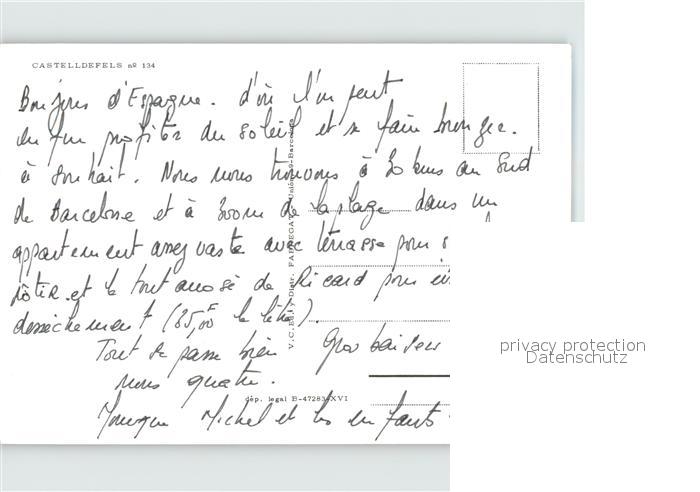 CASTELLDEFELS nº 134
Bonjour d'Espagne. d'où l'on peut
enfin profiter du soleil et se faire bronzer.
à souhait. Nous nous trouvons à 20 kms au Sud
de Barcelone et à 300 m de la plage dans un
appartement assez vaste avec terrasse pour s
rôtir. et le tout arrosé de Ricard pour
dessèchement (85,00 F le litre).
Tout se passe bien Gros baisers
nous quatre.
Michel et les enfants
V.C. Ed. y Distr. FABREGAT Unión, 19-Barcelona
dép. legal B-47283-XVI
privacy protection
Datenschutz